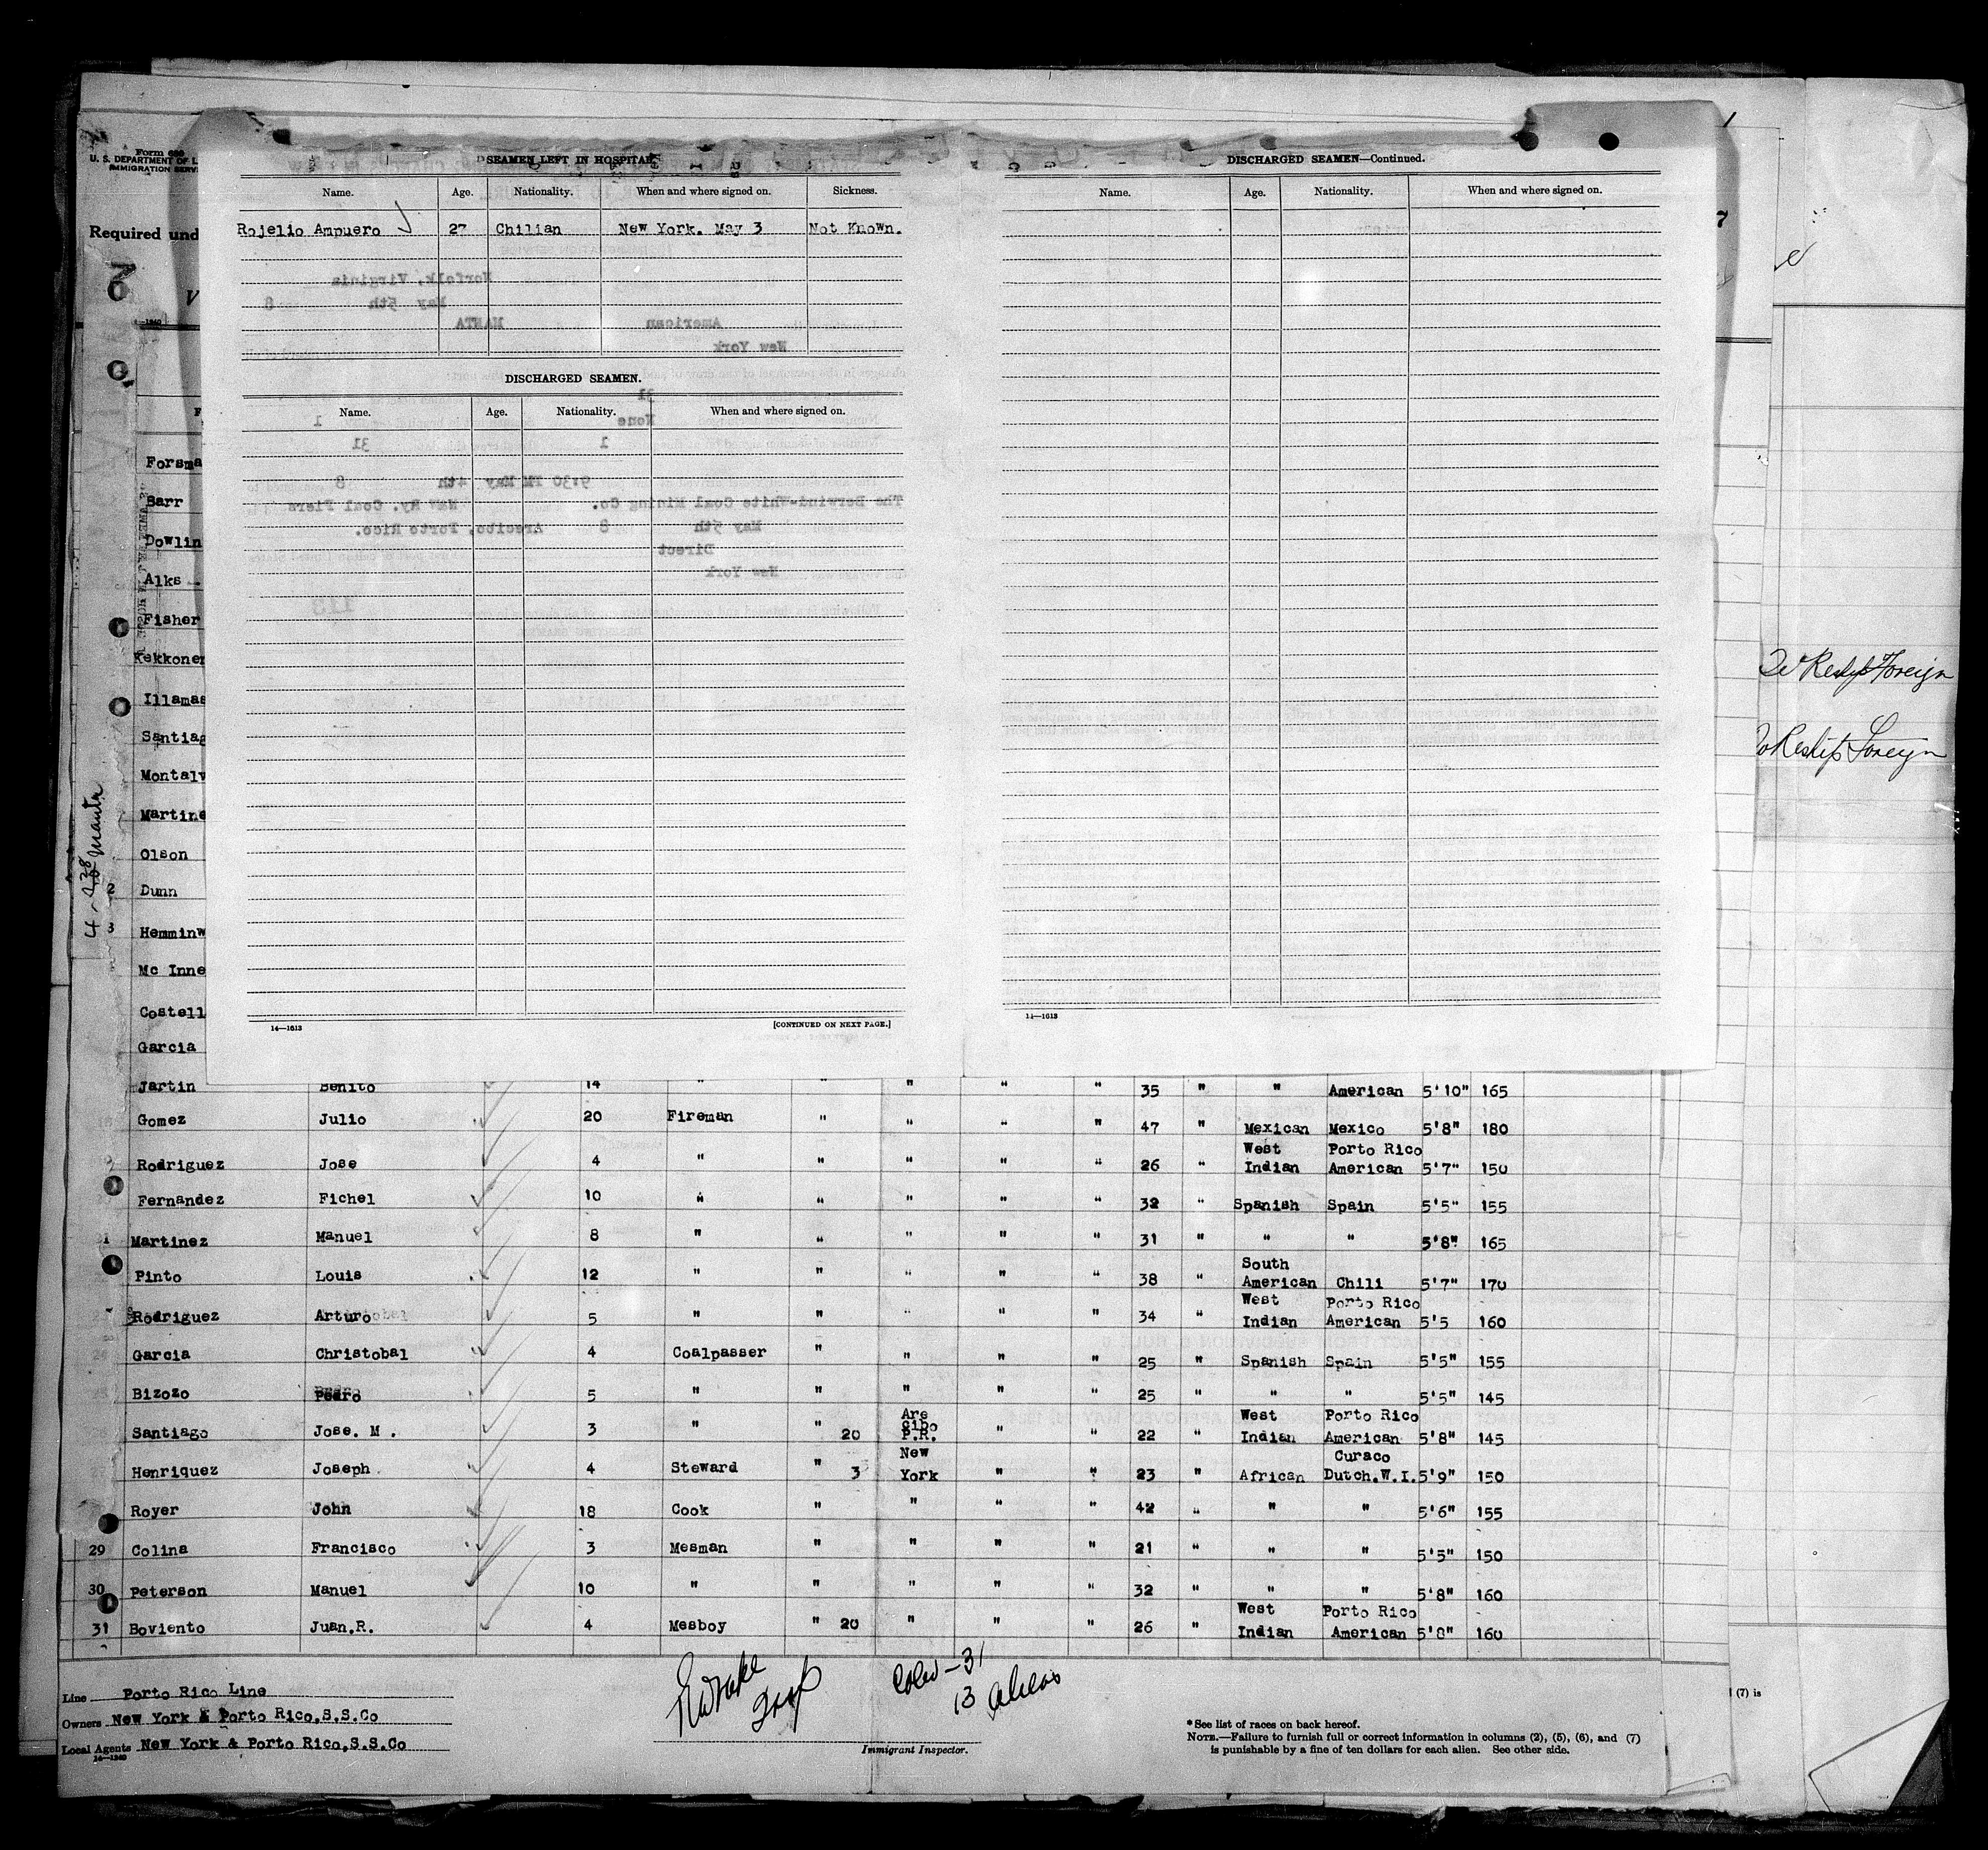 Form 689
U. S. DEPARTMENT OF L
IMMIGRATION SERV
Required und
SEAMEN LEFT IN HOSPITAL.
Name. Age. Nationality. When and where signed on. Sickness.
Rojelio Ampuero 27 Chilian New York. May 3 Not Known.
Norfolk, Virginia
May 5th 8
American MANTA
New York
DISCHARGED SEAMEN.
Name. Age. Nationality. When and where signed on.
31
None 1
1 31
9:30 PM May 4th 8
The Berwind-White Coal Mining Co. N&W Ry. Coal Piers
May 5th 8 Arecibo, Porto Rico.
Direct
New York
113
14—1613 [CONTINUED ON NEXT PAGE.]
DISCHARGED SEAMEN—Continued.
Name. Age. Nationality. When and where signed on.
14—1613
7
To Reship Foreign
To Reship Foreign
Manta
Forsma
Barr
Dowlin
Alks
Fisher
Kekkoner
Illamas
Santiag
Montalv
Martine
Olson
2 Dunn
3 Hemminw
Mc Inne
Costell
Garcia
Jartin Benito 14 " " " " " 35 " " American 5'10" 165
Gomez Julio 20 Fireman " " " " 47 " Mexican Mexico 5'8" 180
Rodriguez Jose 4 " " " " " 26 " West Indian Porto Rico American 5'7" 150
Fernandez Fichel 10 " " " " " 32 " Spanish Spain 5'5" 155
1 Martinez Manuel 8 " " " " " 31 " " " 5'8" 165
Pinto Louis 12 " " " " " 38 " South American Chili 5'7" 170
Rodriguez Arturo 5 " " " " " 34 " West Indian Porto Rico American 5'5 160
Garcia Christobal 4 Coalpasser " " " " 25 " Spanish Spain 5'5" 155
Bizozo Pedro 5 " " " " " 25 " " " 5'5" 145
Santiago Jose. M . 3 " " 20 Are cibo P.R. " " 22 " West Indian Porto Rico American 5'8" 145
Henriquez Joseph 4 Steward " 3 New York " " 23 " African Curaco Dutch.W.I. 5'9" 150
Royer John 18 Cook " " " " 42 " " " 5'6" 155
29 Colina Francisco 3 Mesman " " " " 21 " " " 5'5" 150
30 Peterson Manuel 10 " " " " " 32 " " " 5'8" 160
31 Boviento Juan.R. 4 Mesboy " 20 " " " 26 " West Indian Porto Rico American 5'8" 160
Line Porto Rico Line
Owners New York & Porto Rico.S.S.Co
Local Agents New York & Porto Rico.S.S.Co
14—1240
31
13 aliens
Immigrant Inspector.
* See list of races on back hereof.
NOTE.—Failure to furnish full or correct information in columns (2), (5), (6), and (7)
is punishable by a fine of ten dollars for each alien. See other side.
(7) is